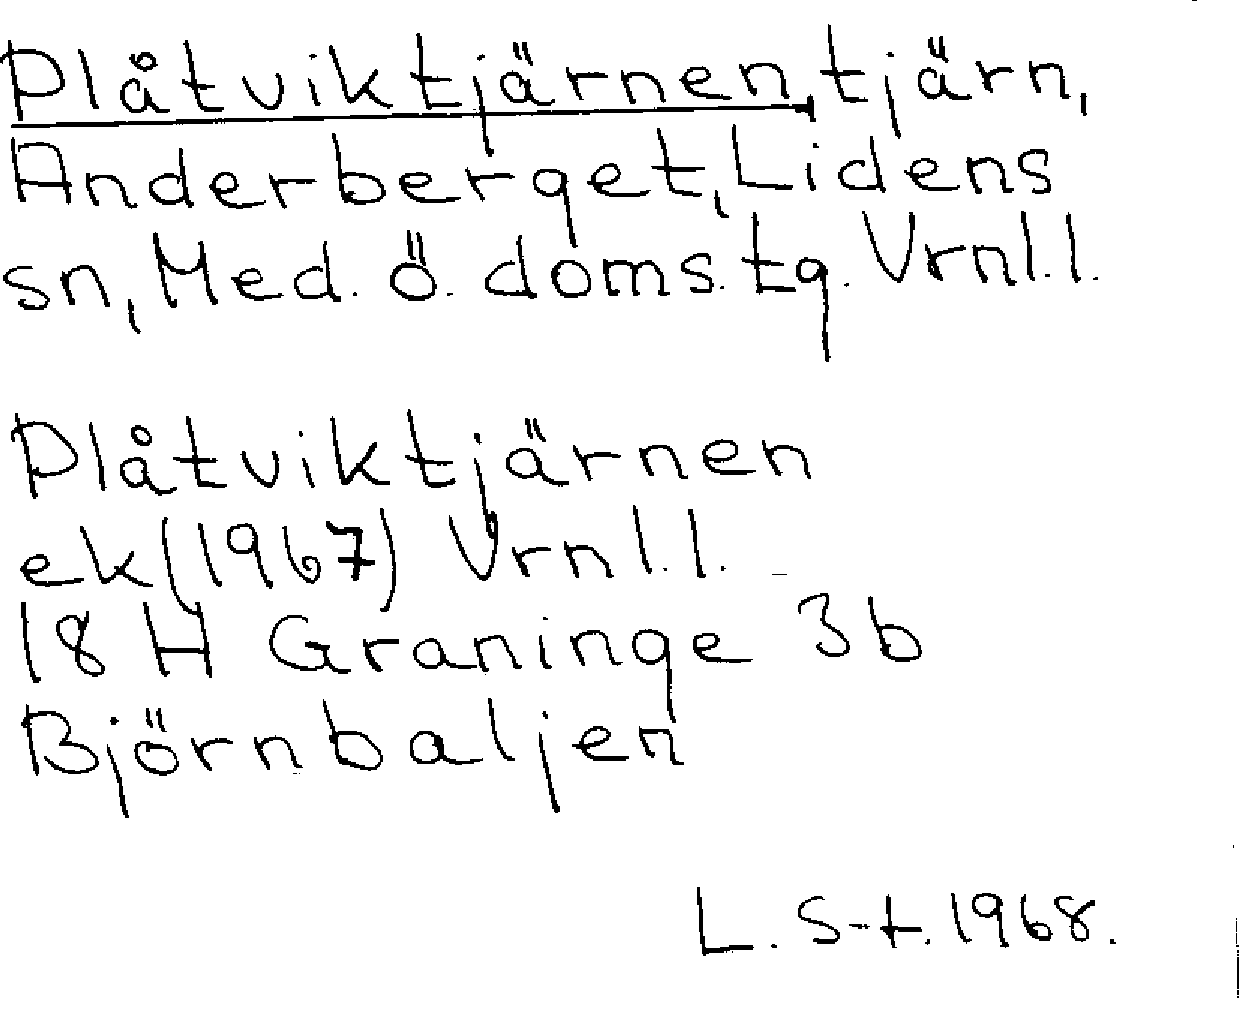 Plåtviktjärnen, tjärn,
Anderberget, Lidens
sn, Med. ö. doms. tg. Vrnl.l.
Plåtviktjärnen
ek (1967) Vrnl.l.
18 H Graninge 3b
Björnbaljen
L. S-t. 1968.